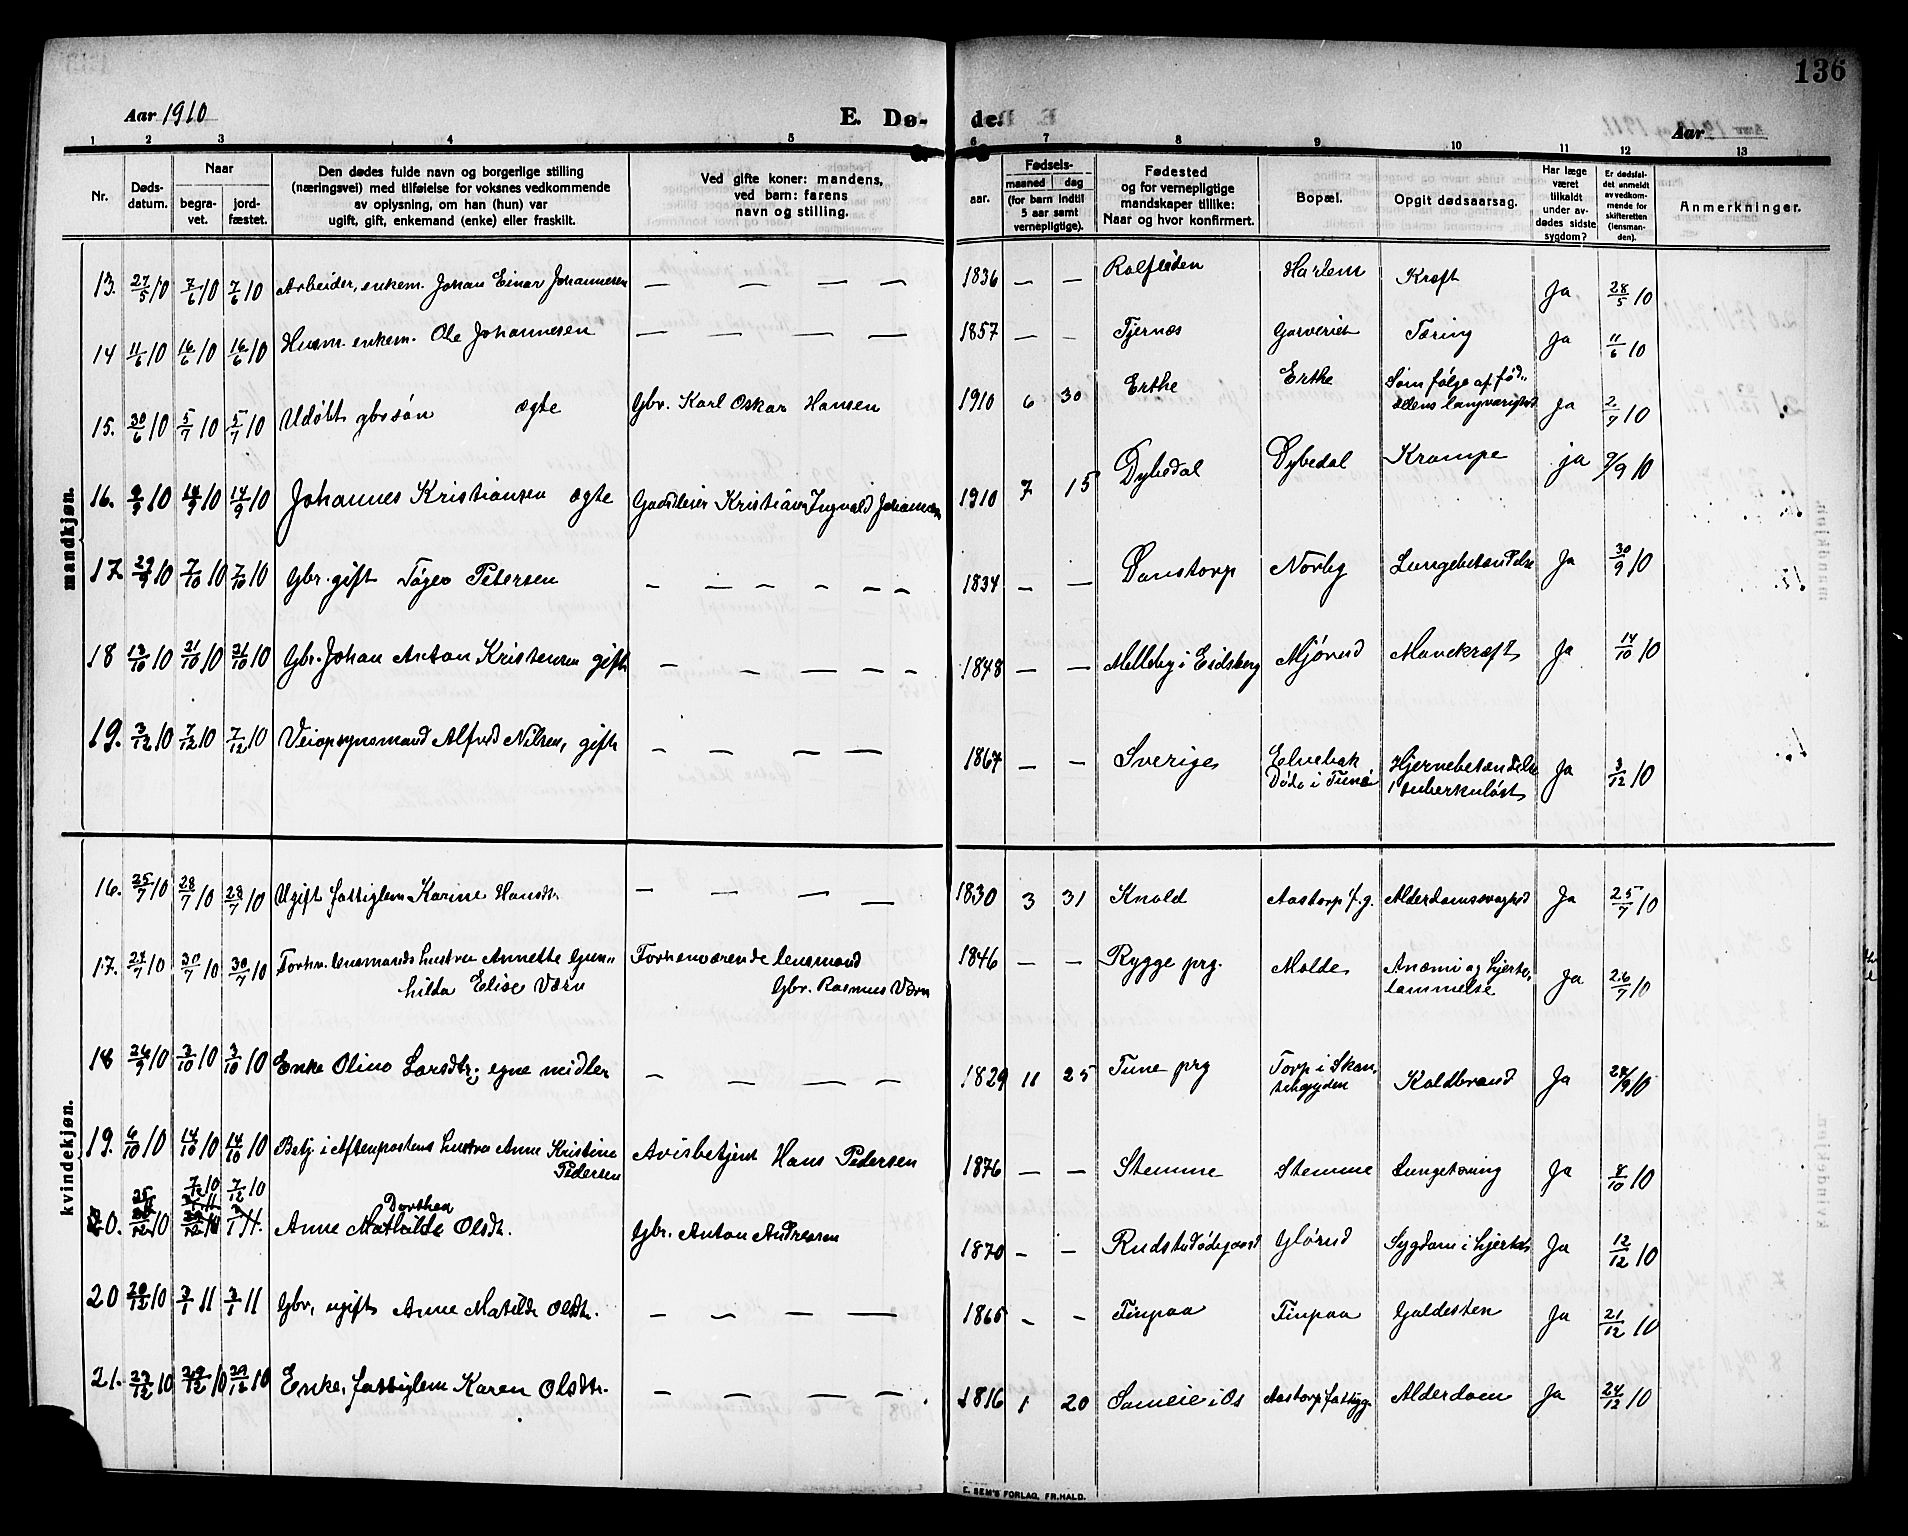 136
Aar 1910 E. Dø- de. Aar
1 2 3 4 5 6 7 8 9 10 11 12 13
Nr. Døds-datum. Naar begra-vet. jord-fæstet. Den dødes fulde navn og borgerlige stilling (næringsvei) med tilføielse for voksnes vedkommende av oplysning, om han (hun) var ugift, gift, enkemand (enke) eller fraskilt. Ved gifte koner: mandens, ved barn: farens navn og stilling. aar. Fødsels- maaned dag (for barn indtil 5 aar samt vernepligtige). Fødested og for vernepligtige mandskaper tillike: Naar og hvor konfirmert. Bopæl. Opgit dødsaarsag. Har læge været tilkaldt under av-dødes sidste sygdom? Er dødsfal-det anmeldt av vedkom-mende for skifteretten (lensman-den). Anmerkninger.
mandkjøn.
13. 27/5 10 7/6 10 7/6 10 Arbeider, enkem. Johan Einar Johannesen — — — — 1836 — — Rolfsøen Harlem Kræft Ja 28/5 10
14 11/6 10 16/6 10 16/6 10 Husm. enkem. Ole Johannesen — — — — 1857 — — Tjernæs Garveriet Tæring Ja 11/6 10
15. 30/6 10 5/7 10 5/7 10 Udøbt gbr.søn ægte Gbr. Karl Oskar Hansen 1910 6 30 Erthe Erthe Som følge af fød„
selens langvarighet Ja 2/7 10
16. 9/9 10 14/9 10 14/9 10 Johannes Kristiansen ægte Gaardeier Kristian Ingvald Johannesen 1910 7 15 Dybedal Dybedal Krampe ja 9/9 10
17 29/9 10 7/10 10 7/10 10 Gbr. gift Tøger Petersen — — — — — 1834 — — Danstorp Norby Lungebetændelse Ja 30/9 10
18 13/10 10 21/10 10 21/10 10 Gbr. Johan Anton Kristensen gift — — — — — 1848 — — Melleby i Eidsberg Mjørud Mavekræft Ja 14/10 10
19. 3/12 10 7/12 10 7/12 10 Veiopsynsmand Alfred Nilsen, gift — — — — 1867 — — Sverige Elvebak
Døde i Tune Hjernebetændelse
tuberkuløst Ja 3/12 10
kvindekjøn.
16. 25/7 10 28/7 10 28/7 10 Ugift fattiglem Karine Hansdt. — — — — 1830 3 31 Knold Aastorp f.g. Alderdomssvaghed Ja 25/7 10
17. 27/7 10 30/7 10 30/7 10 Forhv. lensmands hustru Annette Gun„
hilda EliseVærn Forhenværende lensmand
Gbr. Rasmus Værn 1846 — — Rygge prg. Molde Anæmi og hjerte„
lammelse Ja 26/7 10
18 26/9 10 3/10 10 3/10 10 Enke Oline Larsdtr; egne midler — — — — 1829 11 25 Tune prg Torp i Skan„
sebygden Koldbrand Ja 28/9 10
19. 6/10 10 14/10 10 14/10 10 Betj. i Aftenpostens hustru Anne Kristine
Pedersen Avisbetjent Hans Pedersen 1876 — — Stemme Stemme Lungetæring Ja 8/10 10
20. 10 7/12 10 7/12 10 Anne Mathilde Dorthea Olsdt. Gbr. Anton Andresen 1870 — — Rudsødegaard Glørud Sygdom i hjertet Ja 12/12 10
20 20/12 10 3/1 11 3/1 11 Gbr, ugift Anne Matilde Olsdt. — — — — 1865 — — Finpaa Finpaa Galdesten Ja 21/12 10
21. 23/12 10 29/12 10 29/12 10 Enke, fattiglem Karen Olsdtr. — — — — 1816 1 20 Sameie i Os Aastorp fattigg. Alderdom Ja 24/12 10
E. SEM'S FORLAG, FR.HALD.